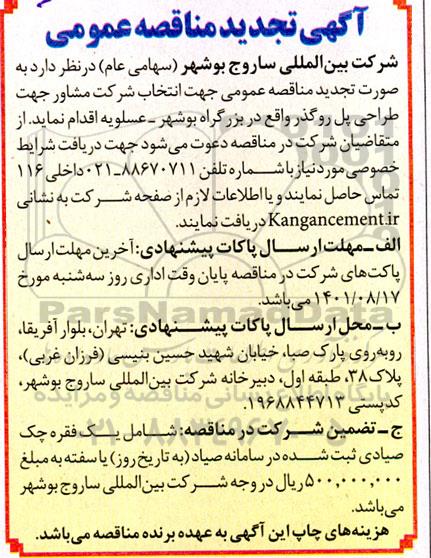 آگهی تجدید مناقصه عمومی
شرکت بین‌المللی ساروج بوشهر (سهامی عام) در نظر دارد به
صورت تجدید مناقصه عمومی جهت انتخاب شرکت مشاور جهت
طراحی پل روگذر واقع در بزرگراه بوشهر ـ عسلویه اقدام نماید. از
متقاضیان شرکت در مناقصه دعوت می‌شود جهت دریافت شرایط
خصوصی مورد نیاز با شماره تلفن ۸۸۶۷۰۷۱۱ـ۰۲۱ داخلی ۱۱۶
تماس حاصل نمایند و یا اطلاعات لازم از صفحه شرکت به نشانی
Kangancement.ir دریافت نمایند.
الف ـ مهلت ارسال پاکات پیشنهادی: آخرین مهلت ارسال
پاکت‌های شرکت در مناقصه پایان وقت اداری روز سه‌شنبه مورخ
۱۴۰۱/۰۸/۱۷ می‌باشد.
ParsNamadData
ب ـ محل ارسال پاکات پیشنهادی: تهران، بلوار آفریقا،
روبه‌روی پارک صبا، خیابان شهید حسین بنیسی (فرزان غربی)،
پلاک ۳۸، طبقه اول، دبیرخانه شرکت بین‌المللی ساروج بوشهر،
کدپستی ۱۹۶۸۸۴۴۷۱۳.
ج ـ تضمین شرکت در مناقصه: شامل یک فقره چک
صیادی ثبت شده در سامانه صیاد (به تاریخ روز) یا سفته به مبلغ
۵۰۰,۰۰۰,۰۰۰ ریال در وجه شرکت بین‌المللی ساروج بوشهر
می‌باشد.
هزینه‌های چاپ این آگهی به عهده برنده مناقصه می‌باشد.